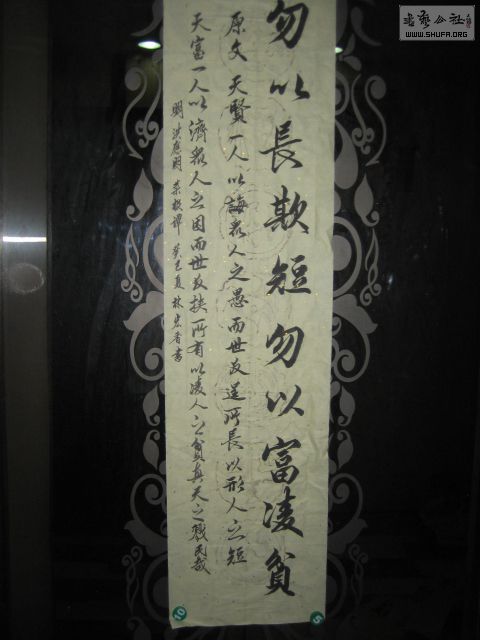 勿以長欺短勿以富凌貧
原文 天賢一人以誨眾人之愚而世反逞所長以形人之短
天富一人以濟眾人之困而世反挟所有以凌人之貧真天之戮民哉
明 洪應明 菜根譚 癸巳夏 林宏香書
書藝公社
WWW.SHUFA.ORG
10
5